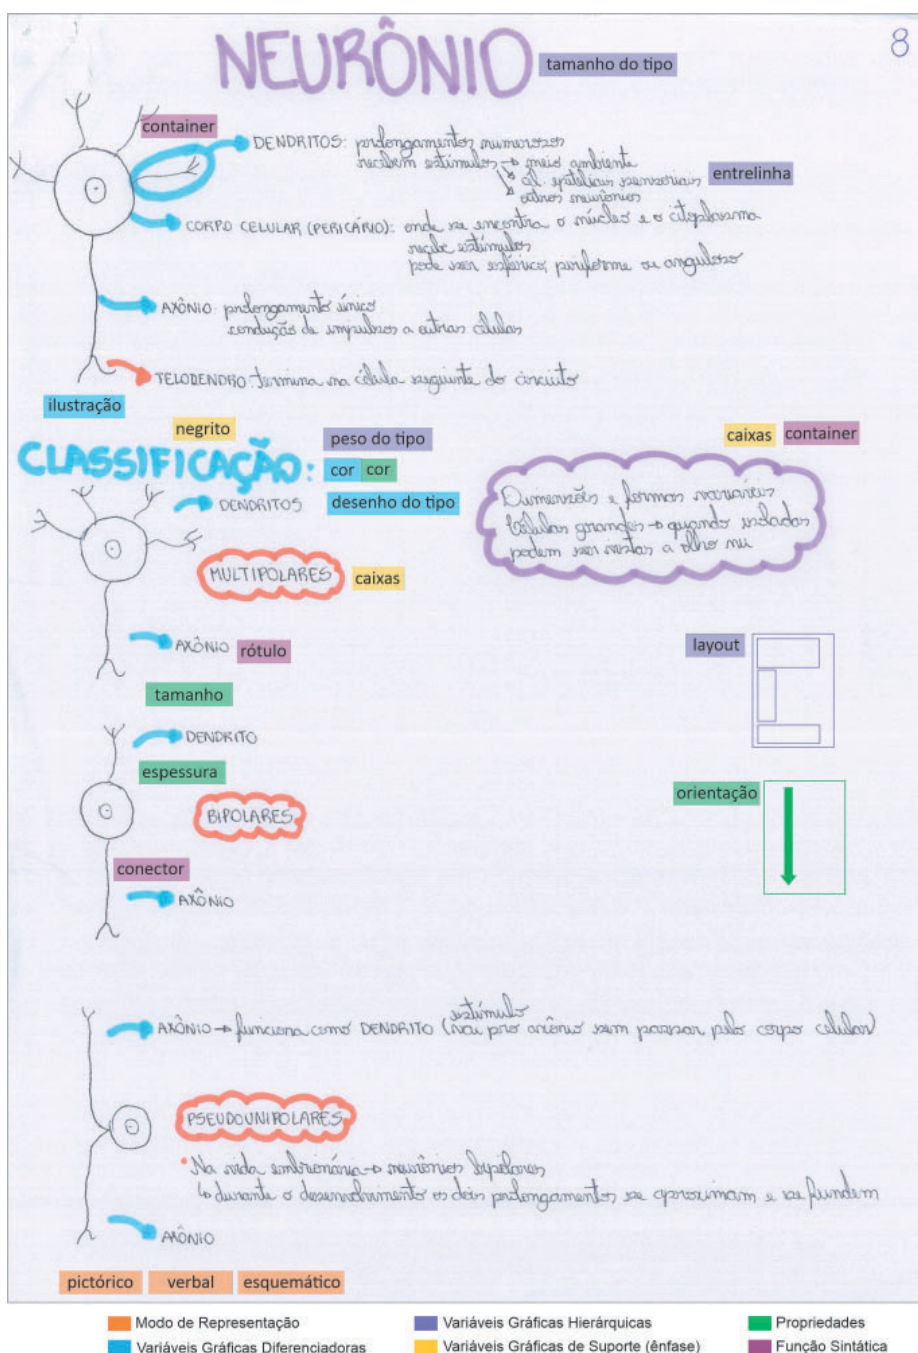 NEURÔNIO
tamanho do tipo
8
container
DENDRITOS: prolongamentos numerosos
recebem estímulos → meio ambiente
cél. epiteliais sensoriais
entrelinha
outros neurônios
CORPO CELULAR (PERICÁRIO): onde se encontra o núcleo e o citoplasma
recebe estímulos
pode ser esférico, piriforme ou anguloso
AXÔNIO: prolongamento único
condução de impulsos a outras células
TELODENDRO: termina na célula seguinte do circuito
ilustração
negrito
peso do tipo
caixas container
CLASSIFICAÇÃO:
cor cor
DENDRITOS
desenho do tipo
Dimensões e formas variáveis
Células grandes → quando isoladas
podem ser vistas a olho nu
MULTIPOLARES
caixas
AXÔNIO
rótulo
layout
tamanho
DENDRITO
espessura
orientação
BIPOLARES
conector
AXÔNIO
estímulo
AXÔNIO → funciona como DENDRITO (vai pro axônio sem passar pelo corpo celular)
PSEUDOUNIPOLARES
• Na vida embrionária → neurônios bipolares
↳ durante o desenvolvimento os dois prolongamentos se aproximam e se fundem
AXÔNIO
pictórico verbal esquemático
Modo de Representação
Variáveis Gráficas Hierárquicas
Propriedades
Variáveis Gráficas Diferenciadoras
Variáveis Gráficas de Suporte (ênfase)
Função Sintática